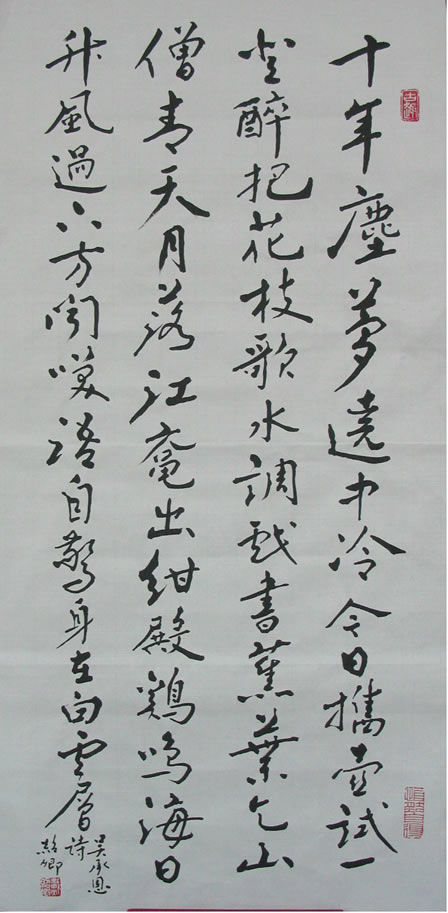 十年塵夢遶中冷今日攜壺試一
登醉把花枝歌水調戲書蕉葉乞山
僧青天月落江黿出紺殿鷄鳴海日
升風過下方聞咲語自驚身在白雲層
吳承恩
詩
卿